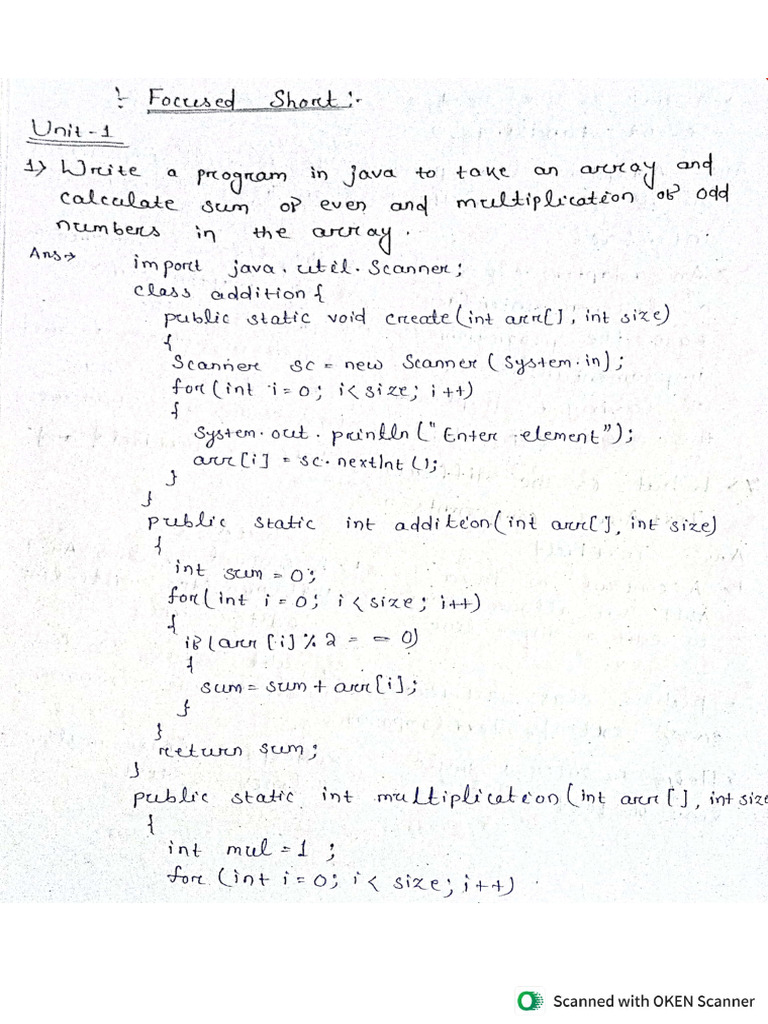 :- Focused Short :-
Unit-1
1) Write a program in java to take an array and
calculate sum of even and multiplication of odd
numbers in the array.
Ans→
import java.util.Scanner;
class addition {
public static void create(int arr[], int size)
{
Scanner sc = new Scanner (System.in);
for(int i=0; i<size; i++)
{
System.out.println("Enter element");
arr[i] = sc.nextInt();
}
}
public static int addition(int arr[], int size)
{
int sum=0;
for(int i=0; i<size; i++)
{
if(arr[i]%2 == 0)
{
sum=sum+arr[i];
}
}
return sum;
}
public static int multiplication(int arr[], int size
{
int mul=1;
for (int i=0; i< size; i++)
Scanned with OKEN Scanner